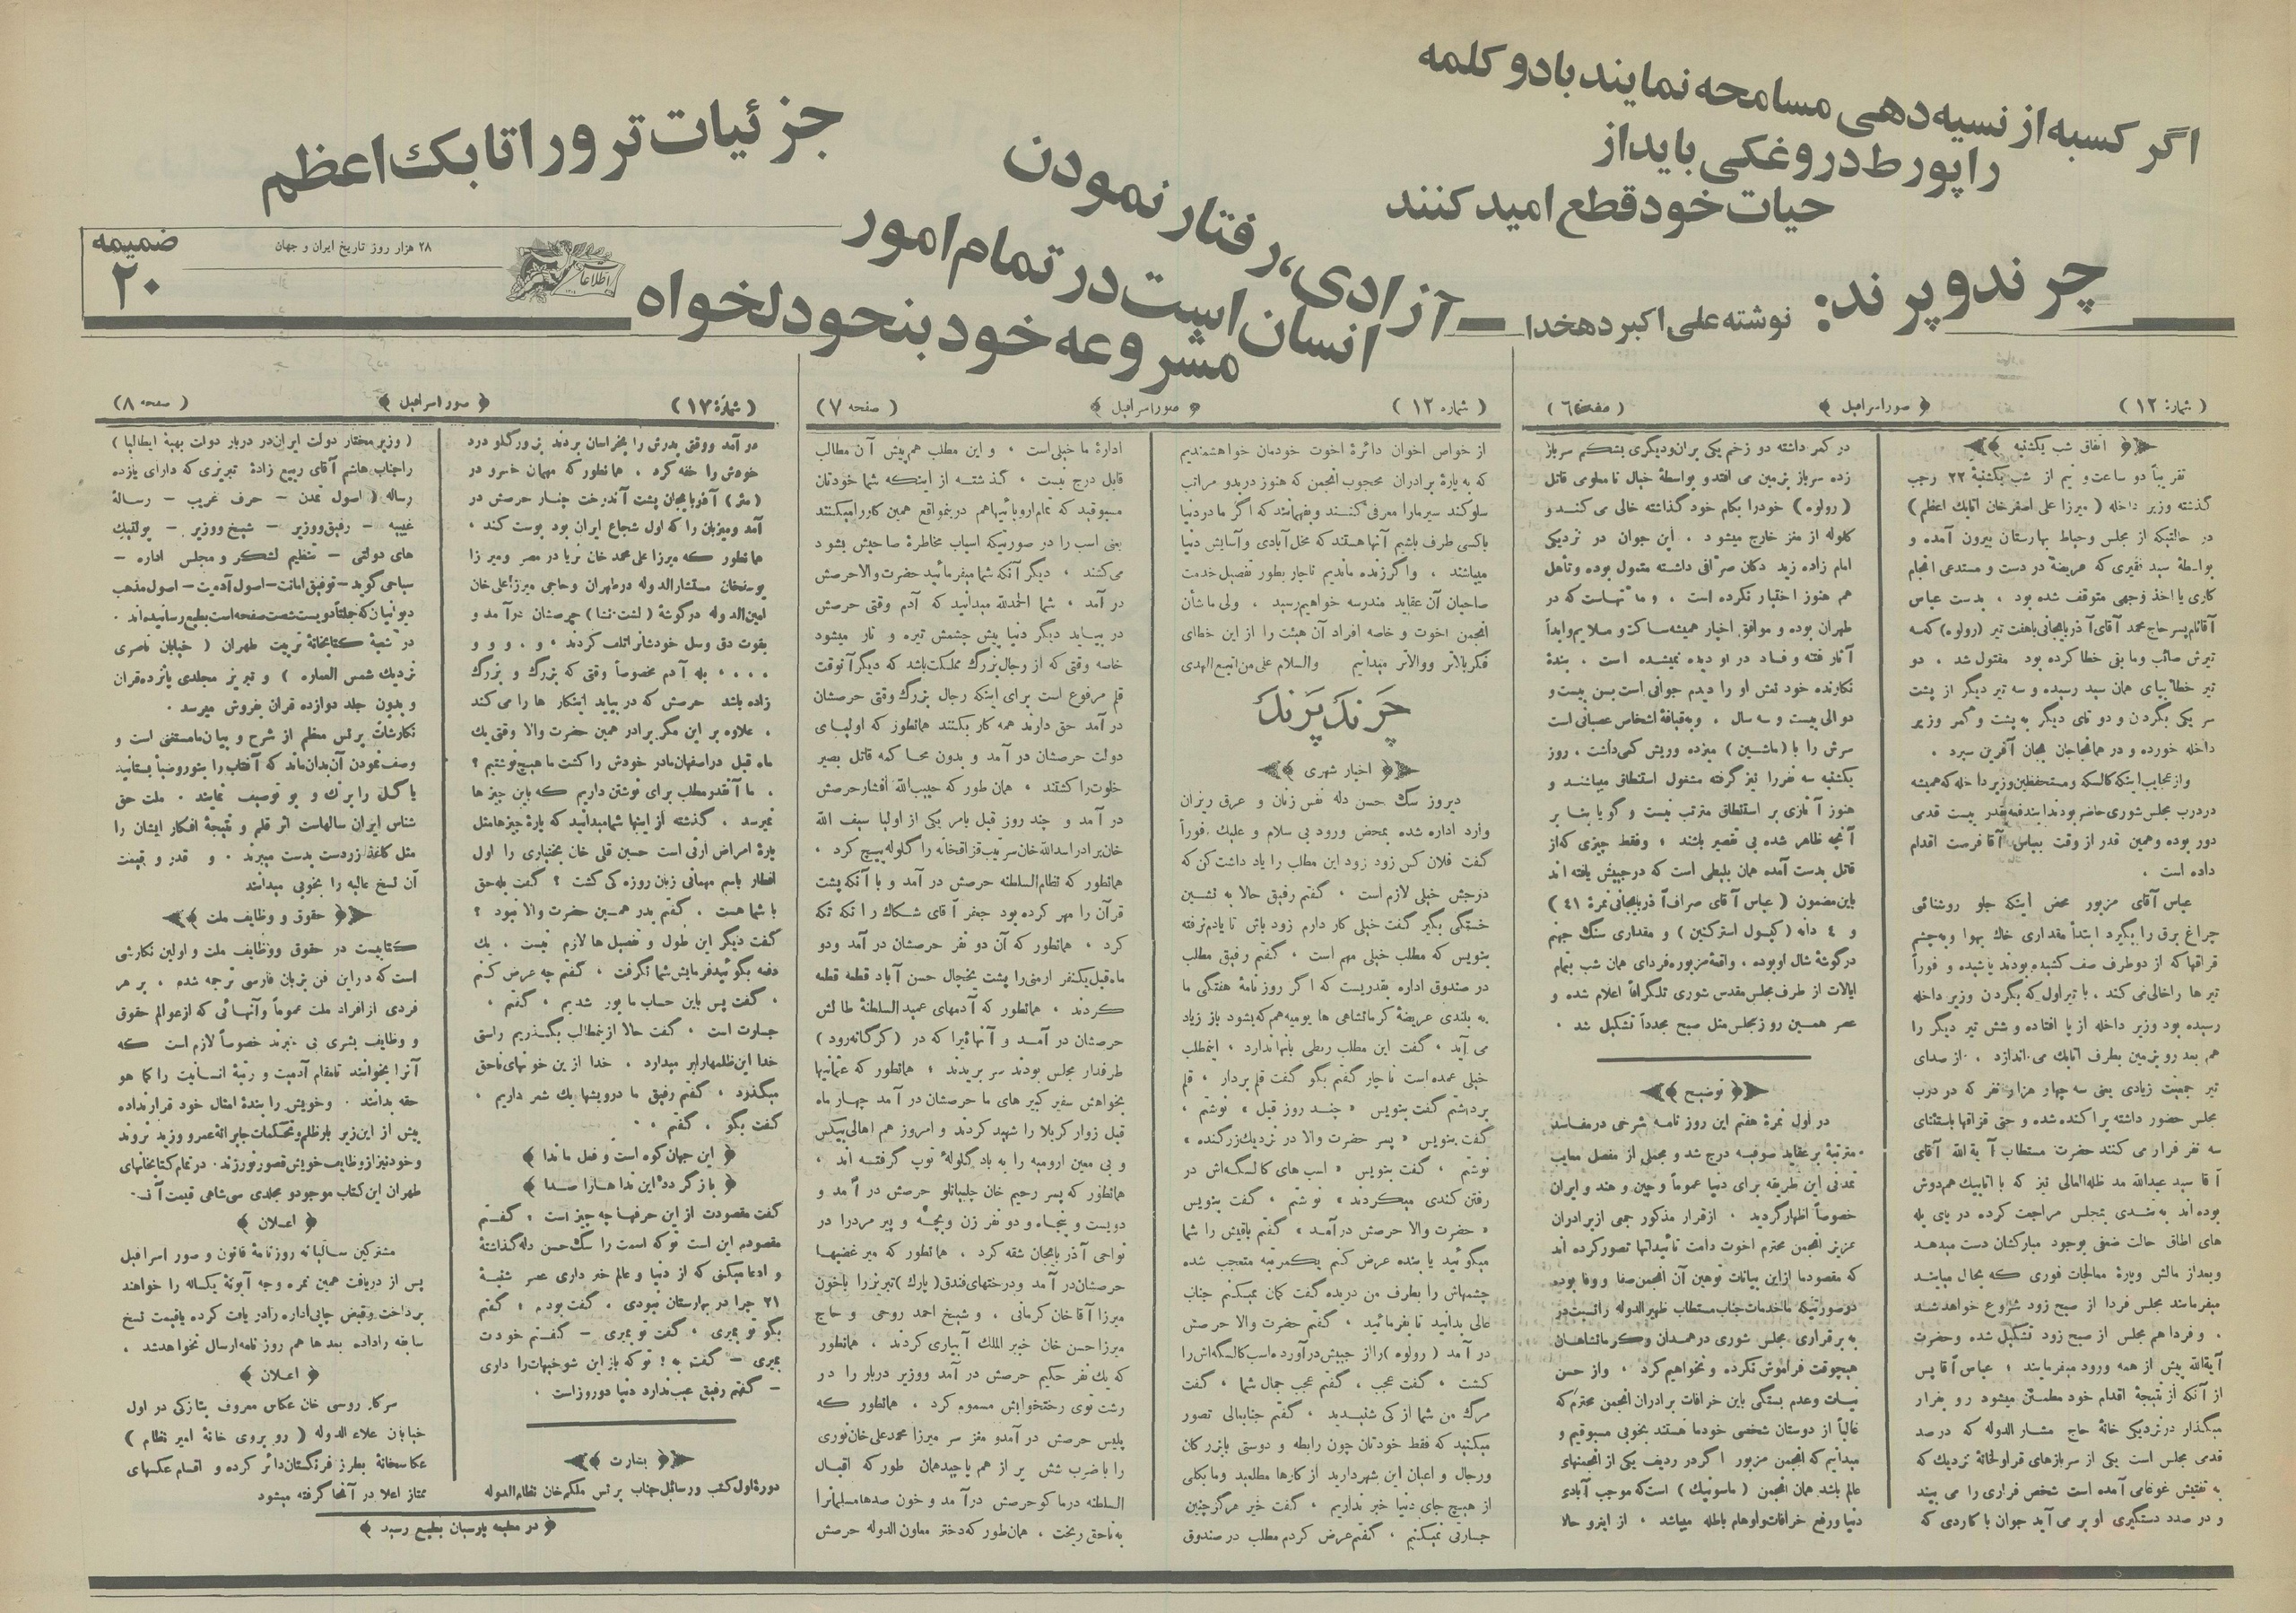 اگر کسبه از نسیه‌دهی مسامحه نمایند با دو کلمه
راپورط دروغکی باید از
حیات خود قطع امید کنند
چرند و پرند:
نوشته علی اکبر دهخدا
آزادی، رفتار نمودن
انسان است در تمام امور
مشروعه خود بنحو دلخواه
جزئیات ترور اتابک اعظم
۲۸ هزار روز تاریخ ایران و جهان
اطلاعات
ضمیمه
۲۰
( شمارۀ ۱۲ )
صور اسرافیل
( صفحه ۶ )
اتفاق شب یکشنبه
تقریباً دو ساعت و نیم از شب یکشنبۀ ۲۲ رجب
گذشته وزیر داخله ( میرزا علی اصغر خان اتابک اعظم )
در حالتیکه از مجلس و حیاط بهارستان بیرون آمده و
بواسطۀ سید فقیری که عریضۀ در دست و مستدعی انجام
کاری یا اخذ وجهی متوقف شده بود . بدست عباس
آقا نام پسر حاج محمد آقای آذربایجانی با هفت تیر ( رولوه ) که سه
تیرش صائب و مابقی خطا کرده بود مقتول شد . دو
تیر خطا بپای همان سید رسیده و سه تیر دیگر از پشت
سر یکی بگردن و دو تای دیگر به پشت و کمر وزیر
داخله خورده و در همانجا جان بجان آفرین سپرد .
و از عجایب اینکه کالسکه و مستحفظین وزیر داخله که همیشه
در درب مجلس شوری حاضر بودند
دور بوده و همین قدر از وقت بعباس آقا فرصت اقدام
داده است .
عباس آقای مزبور محض اینکه جلو روشنائی
چراغ برق را بگیرد ابتدأ مقداری خاک بهوا و به چشم
قزاقها که از دو طرف صف کشیده بودند پاشیده و فوراً
تیرها را خالی می کند . با تیر اول که بگردن وزیر داخله
رسیده بود وزیر داخله از پا افتاده و شش تیر دیگر را
هم بعد رو بزمین بطرف اتابک می اندازد . از صدای
تیر جمعیت زیادی یعنی سه چهار هزار نفر که در درب
مجلس حضور داشته پراکنده شده و حتی قزاقها باستثنای
سه نفر فرار می کنند حضرت مستطاب آیة الله آقای
آقا سید عبدالله مد ظله العالی نیز که با اتابیک هم دوش
بوده اند به تندی بمجلس مراجعت کرده در پای پله
های اطاق حالت ضعفی بوجود مبارکشان دست میدهد
و بعد از مالش و پارۀ معالجات فوری که بحال میایند
میفرمایند مجلس فردا از صبح زود شروع خواهد شد
. و فردا هم مجلس از صبح زود تشکیل شده و حضرت
آیة الله پیش از همه ورود میفرمایند ؛ عباس آقا پس
از آنکه از نتیجۀ اقدام خود مطمئن میشود رو بفرار
میگذار در نزدیکی خانۀ حاج مشار الدوله که در صد
قدمی مجلس است یکی از سربازهای قراولخانۀ نزدیک که
به تفتیش غوغا می آمده است شخص فراری را می بیند
و در صدد دستگیری او بر می آید جوان با کاردی که
در کمر داشته دو زخم یکی بران و دیگری بشکم سرباز
زده سرباز بزمین می افتد و بواسطۀ خیال نامعلومی قاتل
( رولوه ) خود را بکام خود گذاشته خالی می کند و
گلوله از مغز خارج میشود . این جوان در نزدیکی
امام زاده زید دکان صرافی داشته متمول بوده و تأهل
هم هنوز اختیار نکرده است . و مدتهاست که در
طهران بوده و موافق اخبار همیشه ساکت و ملایم و ابداً
آثار فتنه و فساد در او دیده نمیشده است . بندۀ
نگارنده خود نعش او را دیدم جوانی است بسن بیست و
دو الی بیست و سه سال . و به قیافۀ اشخاص عصبانی است
سرش را با ( ماشین ) میزده و ریش کمی داشت . روز
یکشنبه سه نفر را نیز گرفته مشغول استنطاق میباشند و
هنوز آثاری بر استنطاق مترتب نیست و گویا بنا بر
آنچه ظاهر شده بی تقصیر باشند ؛ و فقط چیزی که از
قاتل بدست آمده همان بلیطی است که در جیبش یافته اند
باین مضمون ( عباس آقای صراف آذربایجانی نمرۀ ٤١ )
و ٤ دانه ( کپسول استرکنین ) و مقداری سنگ جهنم
در گوشۀ شال او بوده . واقعۀ مزبوره فردای همان شب بتمام
ایالات از طرف مجلس مقدس شوری تلگرافاً اعلام شده و
عصر همین روز مجلس مثل صبح مجدداً تشکیل شد .
توضیح
در اول نمرۀ هفتم این روز نامه شرحی در مفاسد
مترتبۀ بر عقاید صوفیه درج شد و مجملی از مفصل معایب
تمدنی این طریقه برای دنیا عموماً و چین و هند و ایران
خصوصاً اظهار گردید . از قرار مذکور جمعی از برادران
عزیز انجمن محترم اخوت دامت تائیداتها تصور کرده اند
که مقصود ما از این بیانات توهین آن انجمن صفا و وفا بوده
در صورتیکه ما خدمات جناب مستطاب ظهیر الدوله را نسبت
به برقراری مجلس شوری در همدان و کرمانشاهان
هیچوقت فراموش نکرده و نخواهیم کرد . و از حسن
نیات و عدم بستگی باین خرافات برادران انجمن محترم که
غالباً از دوستان شخصی خود ما هستند بخوبی مسبوقیم و
میدانیم که انجمن مزبور اگر در ردیف یکی از انجمنهای
عالم باشد همان انجمن ( ماسونیک ) است که موجب آبادی
دنیا و رفع خرافات و اوهام باطله میباشد . از اینرو حالا
( شماره ۱۲ )
صور اسرافیل
( صفحه ۷ )
از خواص اخوان دائرۀ اخوت خودمان خواهشمندیم
که به پارۀ برادران محجوب انجمن که هنوز در بدو مراتب
سلوکند سیر ما را معرفی کنند و بفهمانند که اگر ما در دنیا
با کسی طرف باشیم آنها هستند که مخل آبادی و آسایش دنیا
میباشند . و اگر زنده ماندیم ناچار بطور تفصیل خدمت
صاحبان آن عقاید مندرسه خواهیم رسید . ولی ما شأن
انجمن اخوت و خاصه افراد آن هیئت را از این خطای
فکر بالاتر و والاتر میدانیم والسلام علی من اتبع الهدی
چرند پرند
اخبار شهری
دیروز سگ حسن دله نفس زنان و عرق ریزان
وارد اداره شده بمحض ورود بی سلام و علیک فوراً
گفت فلان کس زود زود این مطلب را یاد داشت کن که
درجش خیلی لازم است . گفتم رفیق حالا به نشین
خستگی بگیر گفت خیلی کار دارم زود باش تا یادم نرفته
بنویس که مطلب خیلی مهم است . گفتم رفیق مطلب
در صندوق اداره بقدریست که اگر روز نامۀ هفتگی ما
به بلندی عریضۀ کرمانشاهی ها یومیه هم که بشود باز زیاد
می آید . گفت این مطلب ربطی بآنها ندارد . اینمطلب
خیلی عمده است ناچار گفتم بگو گفت قلم بردار . قلم
برداشتم گفت بنویس « چند روز قبل » نوشتم .
گفت بنویس « پسر حضرت والا در نزدیک زرگنده »
نوشتم . گفت بنویس « اسب های کالسگه اش در
رفتن کندی میکردند » نوشتم . گفت بنویس
« حضرت والا حرصش درآمد » گفتم باقیش را شما
میگوئید یا بنده عرض کنم یکمرتبه متعجب شده
چشمهاش را بطرف من دریده گفت گمان نمیکنم جناب
عالی بدانید تا بفرمائید . گفتم حضرت والا حرصش
در آمد ( رولوه ) را از جیبش درآورده اسب کالسگه اش را
کشت . گفت عجب . گفتم عجب جمال شما . گفت
مرگ من شما از کی شنیدید . گفتم جنابعالی تصور
میکنید که فقط خودتان چون رابطه و دوستی بابزرگان
و رجال و اعیان این شهر دارید از کارها مطلعید و ما بکلی
از هیچ جای دنیا خبر نداریم . گفت خیر هرگز چنین
جسارتی نمیکنم . گفتم عرض کردم مطلب در صندوق
ادارۀ ما خیلی است . و این مطلب هم پیش آن مطالب
قابل درج نیست . گذشته از اینکه شما خودتان
مسبوقید که تمام اروپائیها هم در بنمواقع همین کار را میکنند
یعنی اسب را در صورتیکه اسباب مخاطرۀ صاحبش بشود
می کشند . دیگر آنکه شما میفرمائید حضرت والا حرصش
در آمد . شما الحمدلله میدانید که آدم وقتی حرصش
در بیاید دیگر دنیا پیش چشمش تیره و تار میشود
خاصه وقتی که از رجال بزرگ مملکت باشد که دیگر آنوقت
قلم مرفوع است برای اینکه رجال بزرگ وقتی حرصشان
در آمد حق دارند همه کار بکنند همانطور که اولیای
دولت حرصشان در آمد و بدون محاکمه قاتل بصیر
خلوت را کشتند . همان طور که حبیب الله افشار حرصش
در آمد و چند روز قبل بامر یکی از اولیا سیف الله
خان برادر اسدالله خان سرتیپ قزاقخانه را گلوله پیچ کرد .
همانطور که نظام السلطنه حرصش در آمد و با آنکه پشت
قرآن را مهر کرده بود جعفر آقای شکاک را تکه تکه
کرد . همانطور که آن دو نفر حرصشان در آمد و دو
ماه قبل یکنفر ارمنی را پشت یخچال حسن آباد قطعه قطعه
کردند . همانطور که آدمهای عمید السلطنۀ طالش
حرصشان در آمد و آنهائیرا که در ( کرگانه رود )
طرفدار مجلس بودند سر بریدند ؛ همانطور که عثمانیها
بخواهش سفیر کبیر های ما حرصشان در آمد چهار ماه
قبل زوار کربلا را شهید کردند و امروز هم اهالی بیکس
و بی معین ارومیه را به باد گلولۀ توپ گرفته اند .
همانطور که پسر رحیم خان چلبیانلو حرصش در آمد و
دویست و پنجاه و دو نفر زن و بچه و پیر مرد را در
نواحی آذربایجان شقه کرد . همانطور که میر غضبها
حرصشان در آمد و درختهای فندق ( پارک ) تبریز را با خون
میرزا آقا خان کرمانی . و شیخ احمد روحی و حاج
میرزا حسن خان خبیر الملک آبیاری کردند . همانطور
که یک نفر حکیم حرصش در آمد و وزیر دربار را در
رشت توی رختخوابش مسموم کرد . همانطور که
پلیس حرصش در آمد و مغز سر میرزا محمد علی خان نوری
را با ضرب شش پر از هم پاچید همان طور که اقبال
السلطنه در ماکو حرصش در آمد و خون صدها مسلمانرا
به ناحق ریخت . همان طور که دختر معاون الدوله حرصش
( شمارۀ ۱۷ )
صور اسرافیل
( صفحه ۸ )
در آمد و وقتی پدرش را بخراسان بردند بزور گلو درد
خودش را خفه کرد . همانطور که مهمان خسرو در
( مقر ) آذربایجان پشت آندرخت چنار حرصش در
آمد و میزبان را که اول شجاع ایران بود پوست کند .
همانطور که میرزا علی محمد خان ثریا در مصر و میرزا
یوسفخان مستشار الدوله در طهران و حاجی میرزا علی خان
امین الدوله در گوشۀ ( لشت نشا ) حرصشان در آمد و
بقوت دق و سل خودشانرا تلف کردند . و . و . و
. . . . بله آدم مخصوصاً وقتی که بزرگ و بزرگ
زاده باشد حرصش که در بیاید اینکار ها را می کند
. علاوه بر این مگر برادر همین حضرت والا وقتی یک
ماه قبل در اصفهان مادر خودش را کشت ما هیچ نوشتیم ؟
. ما آنقدر مطلب برای نوشتن داریم که باین چیز ها
نمیرسد . گذشته از اینها شما میدانید که پارۀ چیزها مثل
پارۀ امراض ارثی است حسین قلی خان بختیاری را اول
افطار باسم مهمانی زبان روزه کی کشت ؟ گفت بله حق
با شما هست . گفتم پدر همین حضرت والا نبود ؟
گفت دیگر این طول و تفصیل ها لازم نیست . یک
دفعه بگوئید فرمایش شما نگرفت . گفتم چه عرض کنم
. گفت پس باین حساب ما بور شدیم . گفتم .
جسارت است . گفت حالا از ینمطالب بگذریم راستی
خدا این ظلمها را بر میدارد . خدا از ین خونهای ناحق
میگذرد . گفتم رفیق ما درویشها یک شعر داریم .
گفت بگو . گفتم . .
این جهان کوه است و فعل ما ندا
باز گردد این ندا ها را صدا
گفت مقصودت از این حرفها چه چیز است ؛ گفتم
مقصودم این است تو که اسمت را سگ حسن دله گذاشتۀ
و ادعا میکنی که از دنیا و عالم خبر داری عصر شنبۀ
۲۱ چرا در بهارستان نبودی . گفت بودم ؛ گفتم
بگو تو بمیری . گفت تو بمیری – گفتم خودت
بمیری – گفت به ! تو که باز این شوخیهات را داری
– گفتم رفیق عیب ندارد دنیا دو روز است .
بشارت
دورۀ اول کتب و رسائل جناب پرنس ملکم خان نظام الدوله
( وزیر مختار دولت ایران در دربار دولت بهیۀ ایطالیا )
را جناب هاشم آقای ربیع زادۀ تبریزی که دارای یازده
رساله ( اصول تمدن – حرف غریب – رسالۀ
غیبیه – رفیق و وزیر – شیخ و وزیر – پولتیک
های دولتی – تنظیم لشکر و مجلس اداره –
سیاحی گوید – توفیق امانت – اصول آدمیت – اصول مذهب
دیوانیان که جلتاً دویست شصت صفحه است بطبع رسانیده اند .
در شعبۀ کتابخانۀ تربیت طهران ( خیابان ناصری
نزدیک شمس العماره ) و تبریز مجلدی پانزده قران
و بدون جلد دوازده قران بفروش میرسد .
نگارشات پرنس معظم از شرح و بیان ما مستغنی است و
وصف نمودن آن بدان ماند که آفتاب را بنور و ضیا بستایند
یا گل را برنگ و بو توصیف نمایند . ملت حق
شناس ایران سالهاست اثر قلم و نتیجۀ افکار ایشان را
مثل کاغذ زر دست بدست میبرند . و قدر و قیمت
آن نسخ عالیه را بخوبی میدانند
حقوق و وظایف ملت
کتابیست در حقوق و وظایف ملت و اولین نگارشی
است که در این فن بزبان فارسی ترجمه شده . بر هر
فردی از افراد ملت عموماً و آنهائی که از عوالم حقوق
و وظایف بشری بی خبرند خصوصاً لازم است که
آنرا بخوانند تا مقام آدمیت و رتبۀ انسانیت را کما هو
حقه بدانند . و خویش را بندۀ امثال خود قرار نداده
بیش از این زیر بار ظلم و تحکمات جابرانۀ عمرو و زید نروند
و خود نیز از وظایف خویش قصور نورزند . در تمام کتابخانهای
طهران این کتاب موجود و مجلدی سی شاهی قیمت آنست .
اعلان
مشترکین سالیانه روزنامۀ قانون و صور اسرافیل
پس از دریافت همین نمره وجه آبونۀ یکساله را خواهند
پرداخت و قبض چاپی اداره را دریافت کرده بقیمت نسخ
سابقه را داده بعدها هم روز نامه ارسال نخواهد شد .
اعلان
سرکار روسی خان عکاس معروف بتازکی در اول
خیابان علاء الدوله ( رو بروی خانۀ امیر نظام )
عکاسخانۀ بطرز فرنگستان دائر کرده و اقسام عکسهای
ممتاز اعلا در آنجا گرفته میشود
در مطبعه پارسیان بطبع رسید